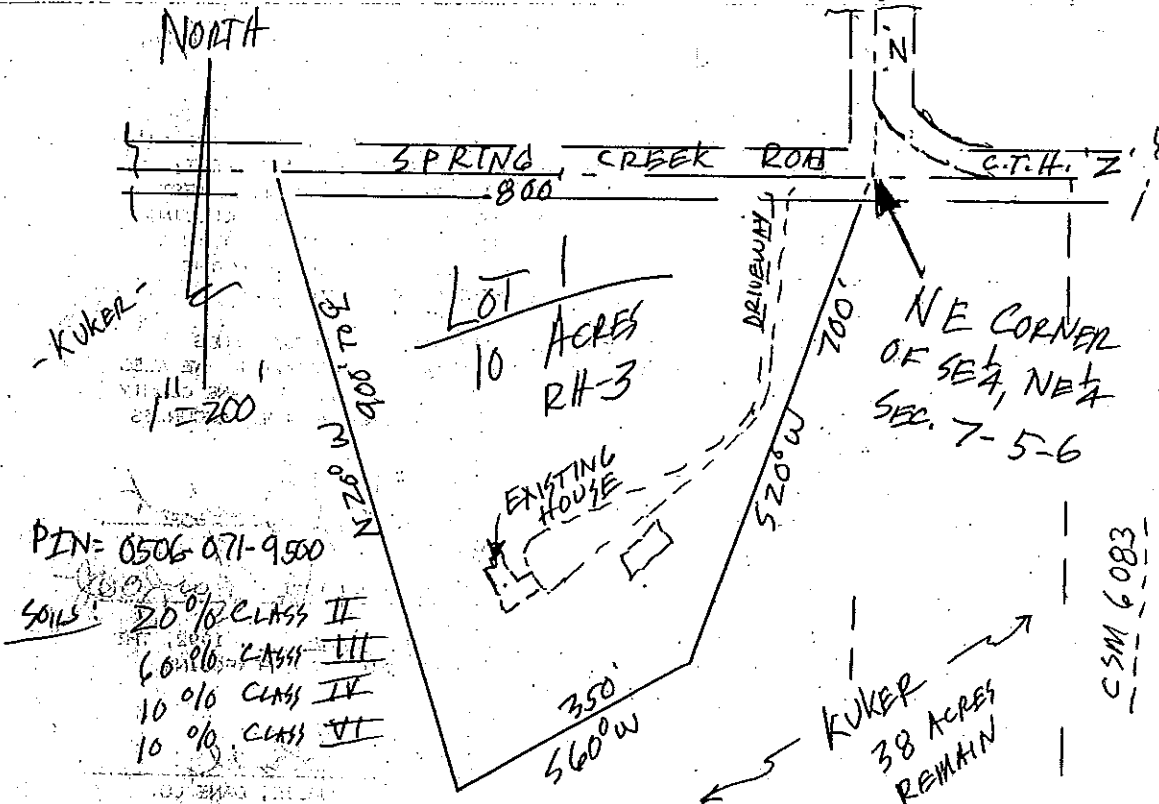 NORTH
N
SPRING CREEK ROAD
C.T.H. 'Z'
800'
DRIVEWAY
LOT 1
10 ACRES
RH-3
- KUKER -
1" = 200'
N 20° W 900'
700'
S20°W
NE CORNER
OF SE¼, NE¼
SEC. 7-5-6
EXISTING
HOUSE
PIN= 0506-071-9500
SOILS: 20% CLASS II
60% CLASS III
10% CLASS IV
10% CLASS VI
350'
S60°W
KUKER
38 ACRES
REMAIN
CSM 6083